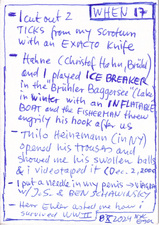 WHEN 17
- I cut out 2
TICKS from my scrotum
with an EXACTO knife
- Höhne (Christof Höhn, Brühl)
and I played ICE BREAKER
in the Brühler Baggersee (Lake)
in winter with an INFLATABLE
BOAT and the FISHERMAN threw
angrily his hook after us
- Thilo Heinzmann (in NY)
opened his TROUSAS and
showed me his swollen balls
& i videotaped it (Dec. 2,
- I put a needle in my penis →
w/ J.S. &
- Herr Euler asked me how I
survived WW II
2024